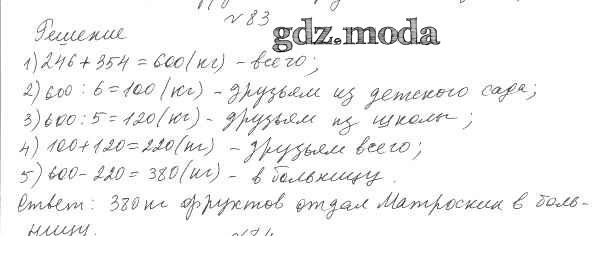 № 83
gdz.moda
Решение
1) 246 + 354 = 600 (кг) - всего;
2) 600 : 6 = 100 (кг) - друзьям из детского сада;
3) 600 : 5 = 120 (кг) - друзьям из школы;
4) 100 + 120 = 220 (кг) - друзьям всего;
5) 600 - 220 = 380 (кг) - в больницу.
Ответ: 380 кг фруктов отдал Матроскин в боль-
ницу.